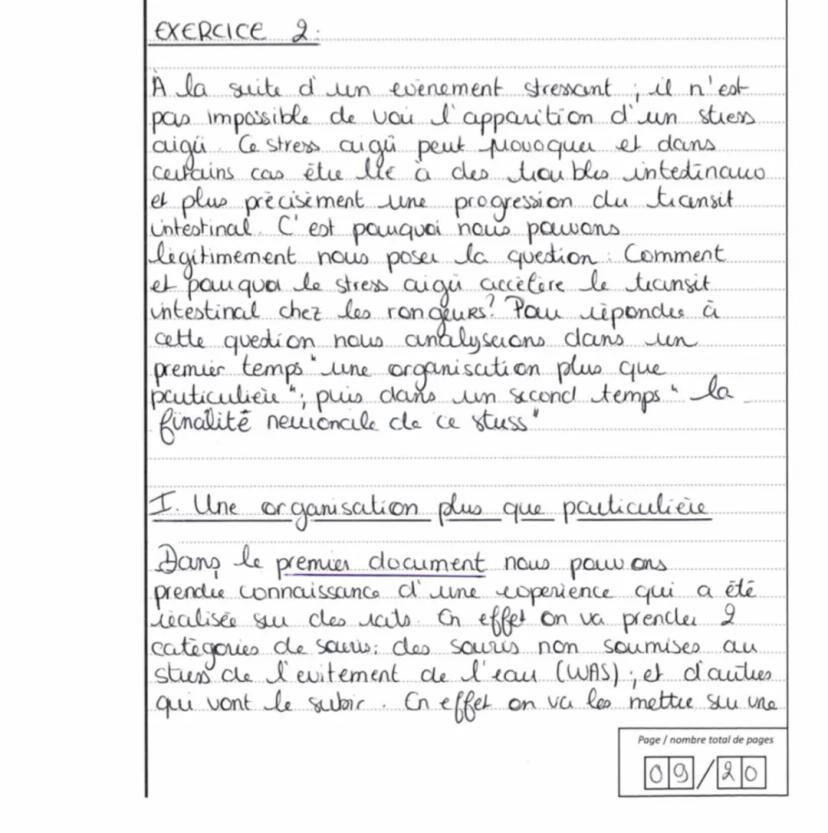 EXERCICE 2:
À la suite d'un evènement stressant, il n'est
pas impossible de voir l'apparition d'un stress
aigü. Ce stress aigü peut provoquer et dans
certains cas être lié à des troubles intestinaux
et plus précisèment une progression du transit
intestinal. C'est pourquoi nous pouvons
légitimement nous poser la question: Comment
et pourquoi le stress aigü accélère le transit
intestinal chez les rongeurs? Pour répondre à
cette question nous analyserons dans un
premier temps "une organisation plus que
particulière"; puis dans un second temps "la
finalité neuronale de ce stress"
I. Une organisation plus que particulière
Dans le premier document nous pouvons
prendre connaissance d'une experience qui a été
réalisée sur des rats. En effet on va prendre 2
catégories de souris: des souris non soumises au
stress de l'evitement de l'eau (WAS); et d'autres
qui vont le subir. En effet on va les mettre sur une
Page / nombre total de pages
09/20